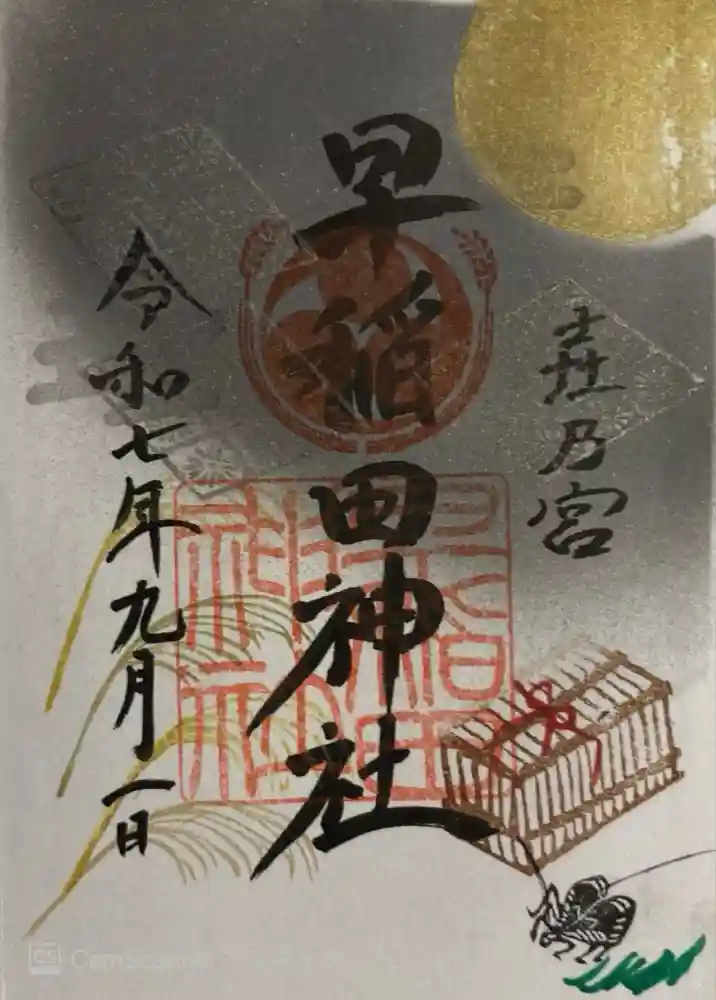 乃宮
早稲田神社
令和七年九月一日
早稲田神社
CS CamScanner